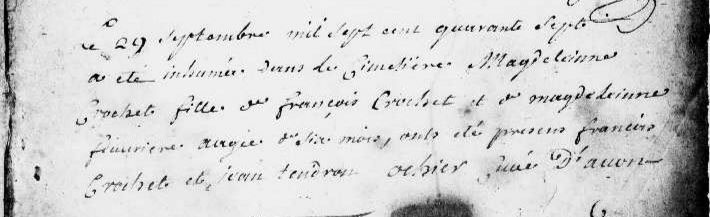 Le 29 septembre mil sept cent quarante sept
a été inhumée dans le Cimetière Magdeleinne
Crochet fille de françois Crochet et de magdeleinne
fevriere augée de six mois, onts été presens francois
Crochet et jean tendron ochier Curé D'avon